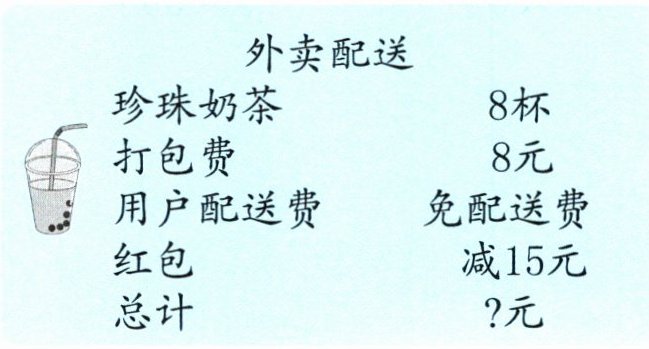 外卖配送
珍珠奶茶 8杯
打包费 8元
用户配送费 免配送费
红包 减15元
总计 ?元